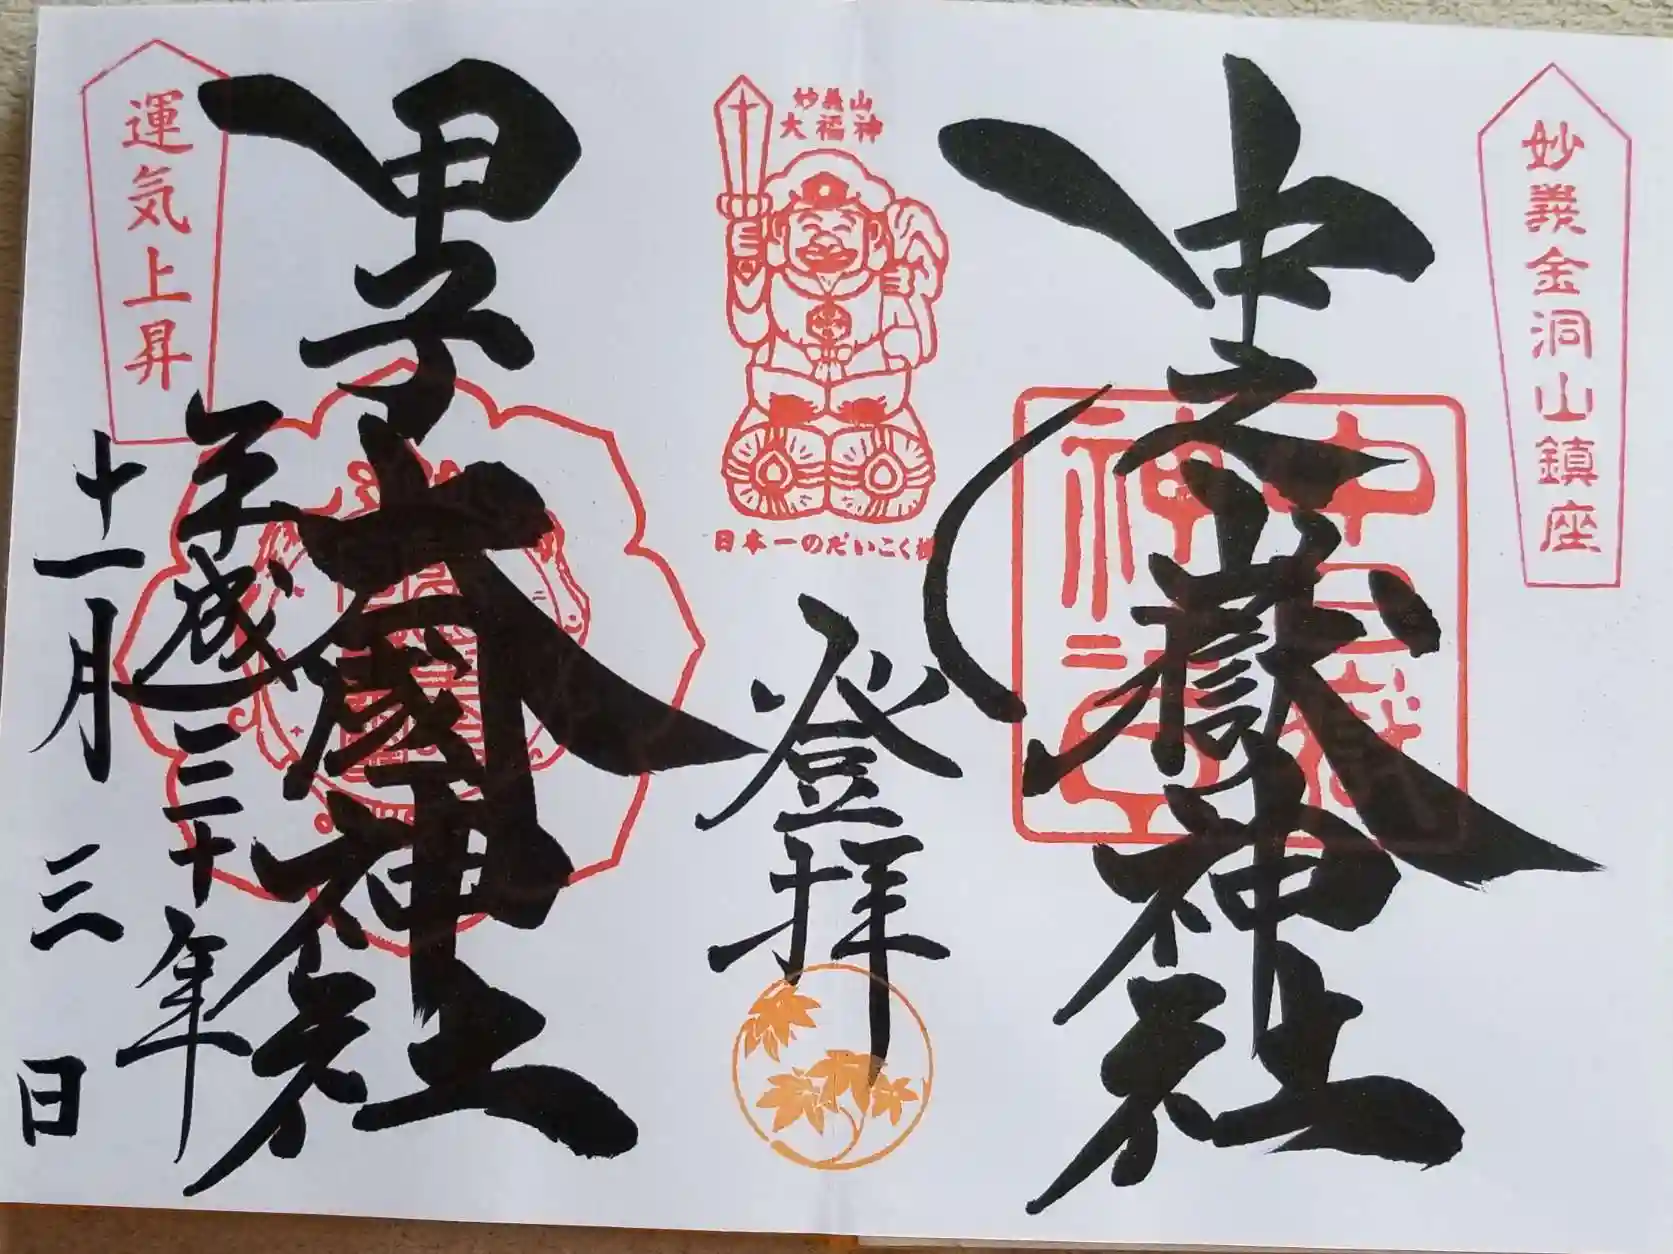 妙義金洞山鎮座
中之嶽神社
妙義山
大福神
日本一のだいこく様
登拝
甲子大國神社
平成三十年
十一月三日
運気上昇